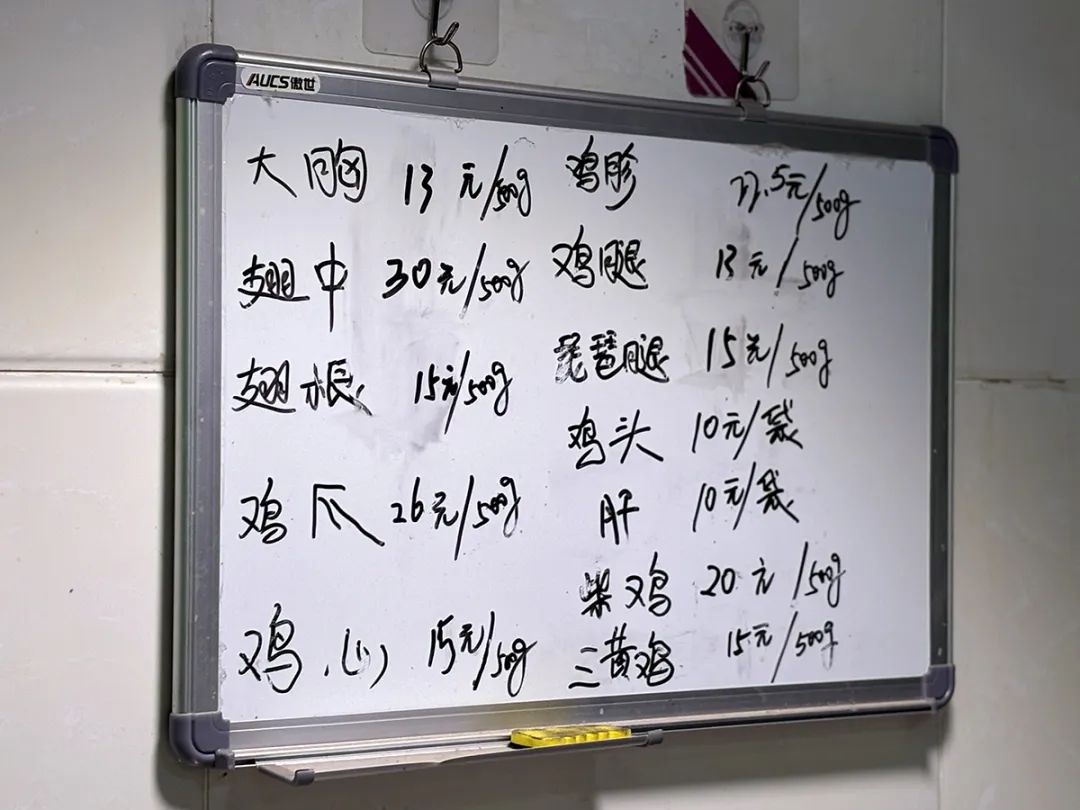 AUCS傲世
大胸 13元/500g
翅中 30元/500g
翅根 15元/500g
鸡爪 26元/500g
鸡心 15元/500g
鸡胗 元/500g
鸡腿 13元/500g
琵琶腿 15元/500g
鸡头 10元/袋
肝 10元/袋
柴鸡 20元/500g
三黄鸡 15元/500g